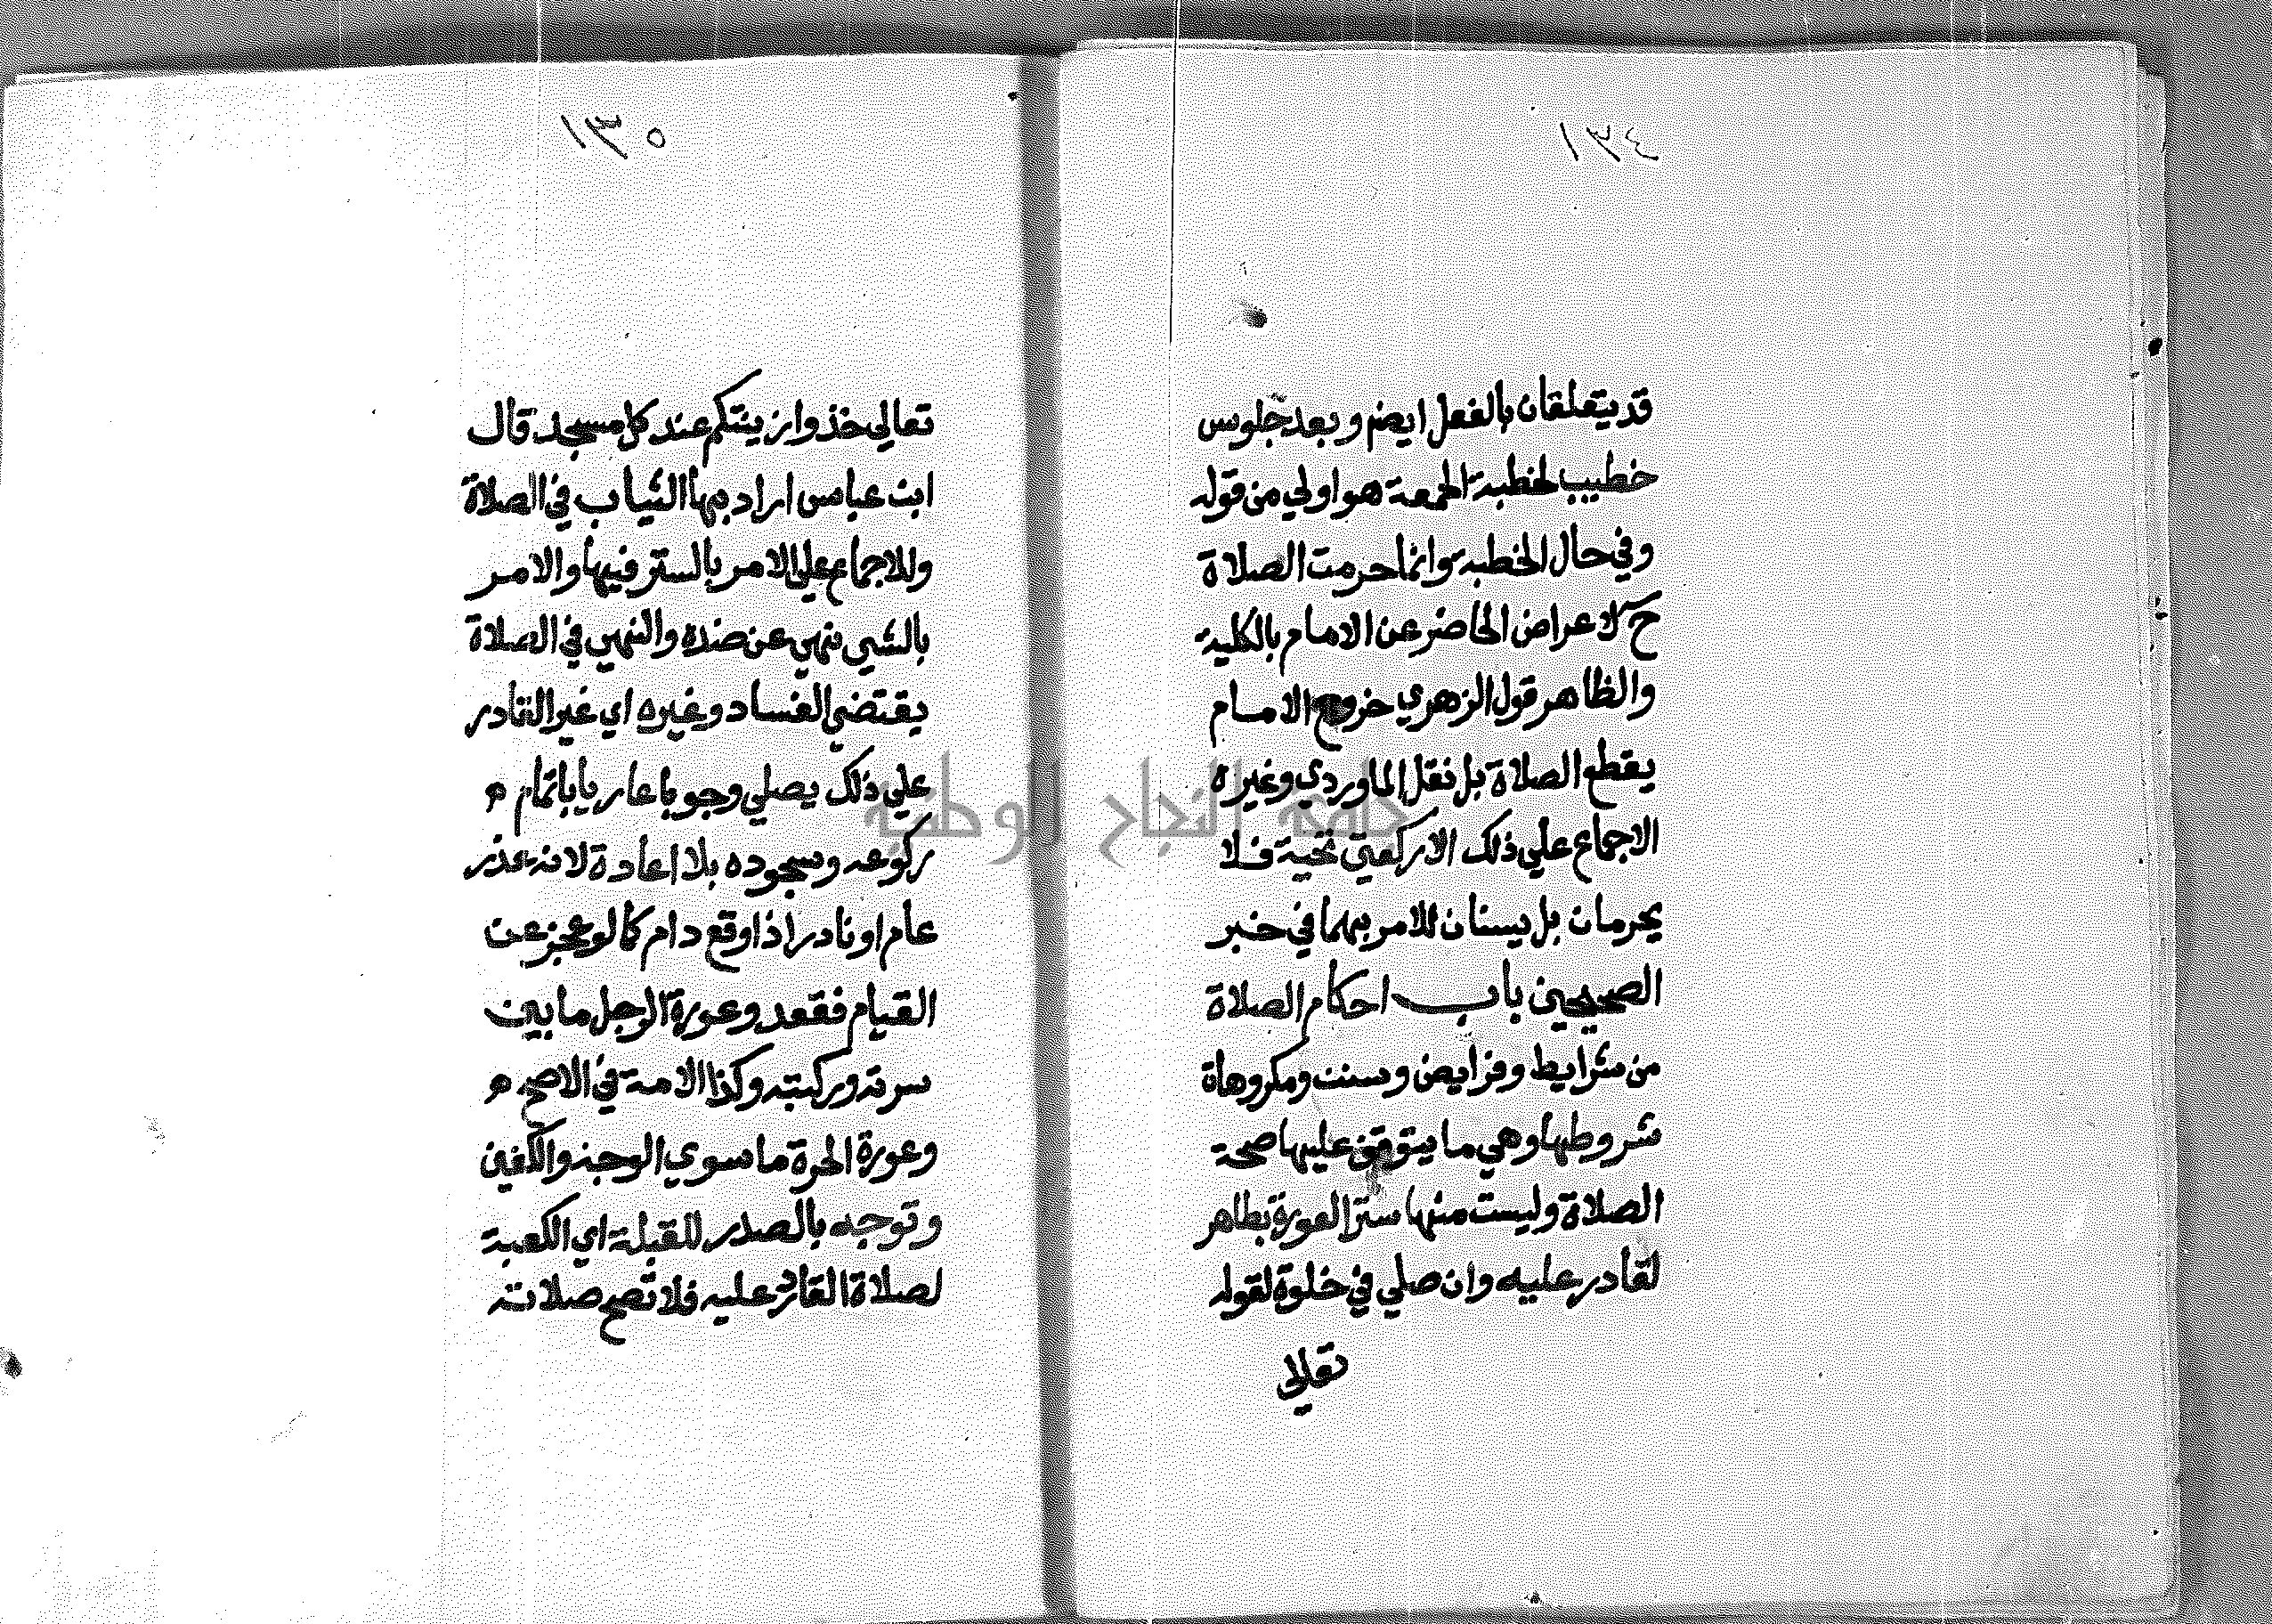 ١٣٤
قد يتعلقان بالفعل ايضم وبعد جلوس
خطيب لخطبة الجمعة هو اولي من قوله
وفي حال الخطبة وانما حرمت الصلاة
ح لاعراض الحاضر عن الامام بالكلية
والظاهر قول الزهري خروج الامام
يقطع الصلاة بل نقل الماوردي وغيره
الاجماع علي ذلك الا ركعتي تحية فلا
يحرمان بل يسنان للامر بهما في خبر
الصحيحين باب احكام الصلاة
من شرايط وفرايض وسنن ومكروهاة
شروطها وهي ما يتوقف عليها صحة
الصلاة وليست منها ستر العورة بطاهر
لقادر عليه وان صلي في خلوة لقوله
تعالي
١٣٥
تعالي خذوا زينتكم عند كل مسجد قال
ابن عباس اراد بها الثياب في الصلاة
وللاجماع علي الامر بالستر فيها والامر
بالشي نهي عن ضده والنهي في الصلاة
يقتضي الفساد وغيره اي غير القادر
علي ذلك يصلي وجوبا عاريا باتمام م
ركوعه وسجوده بلا اعادة لانه عذر
عام او نادر اذا وقع دام كما لو عجز عن
القيام فقعد وعورة الرجل ما بين
سرته وركبته وكذا الامة في الاصح م
وعورة الحرة ما سوي الوجه والكفين
وتوجه بالصدر للقبلة اي الكعبة
لصلاة القادر عليه فلا تصح صلاته
جامعة النجاح الوطنية